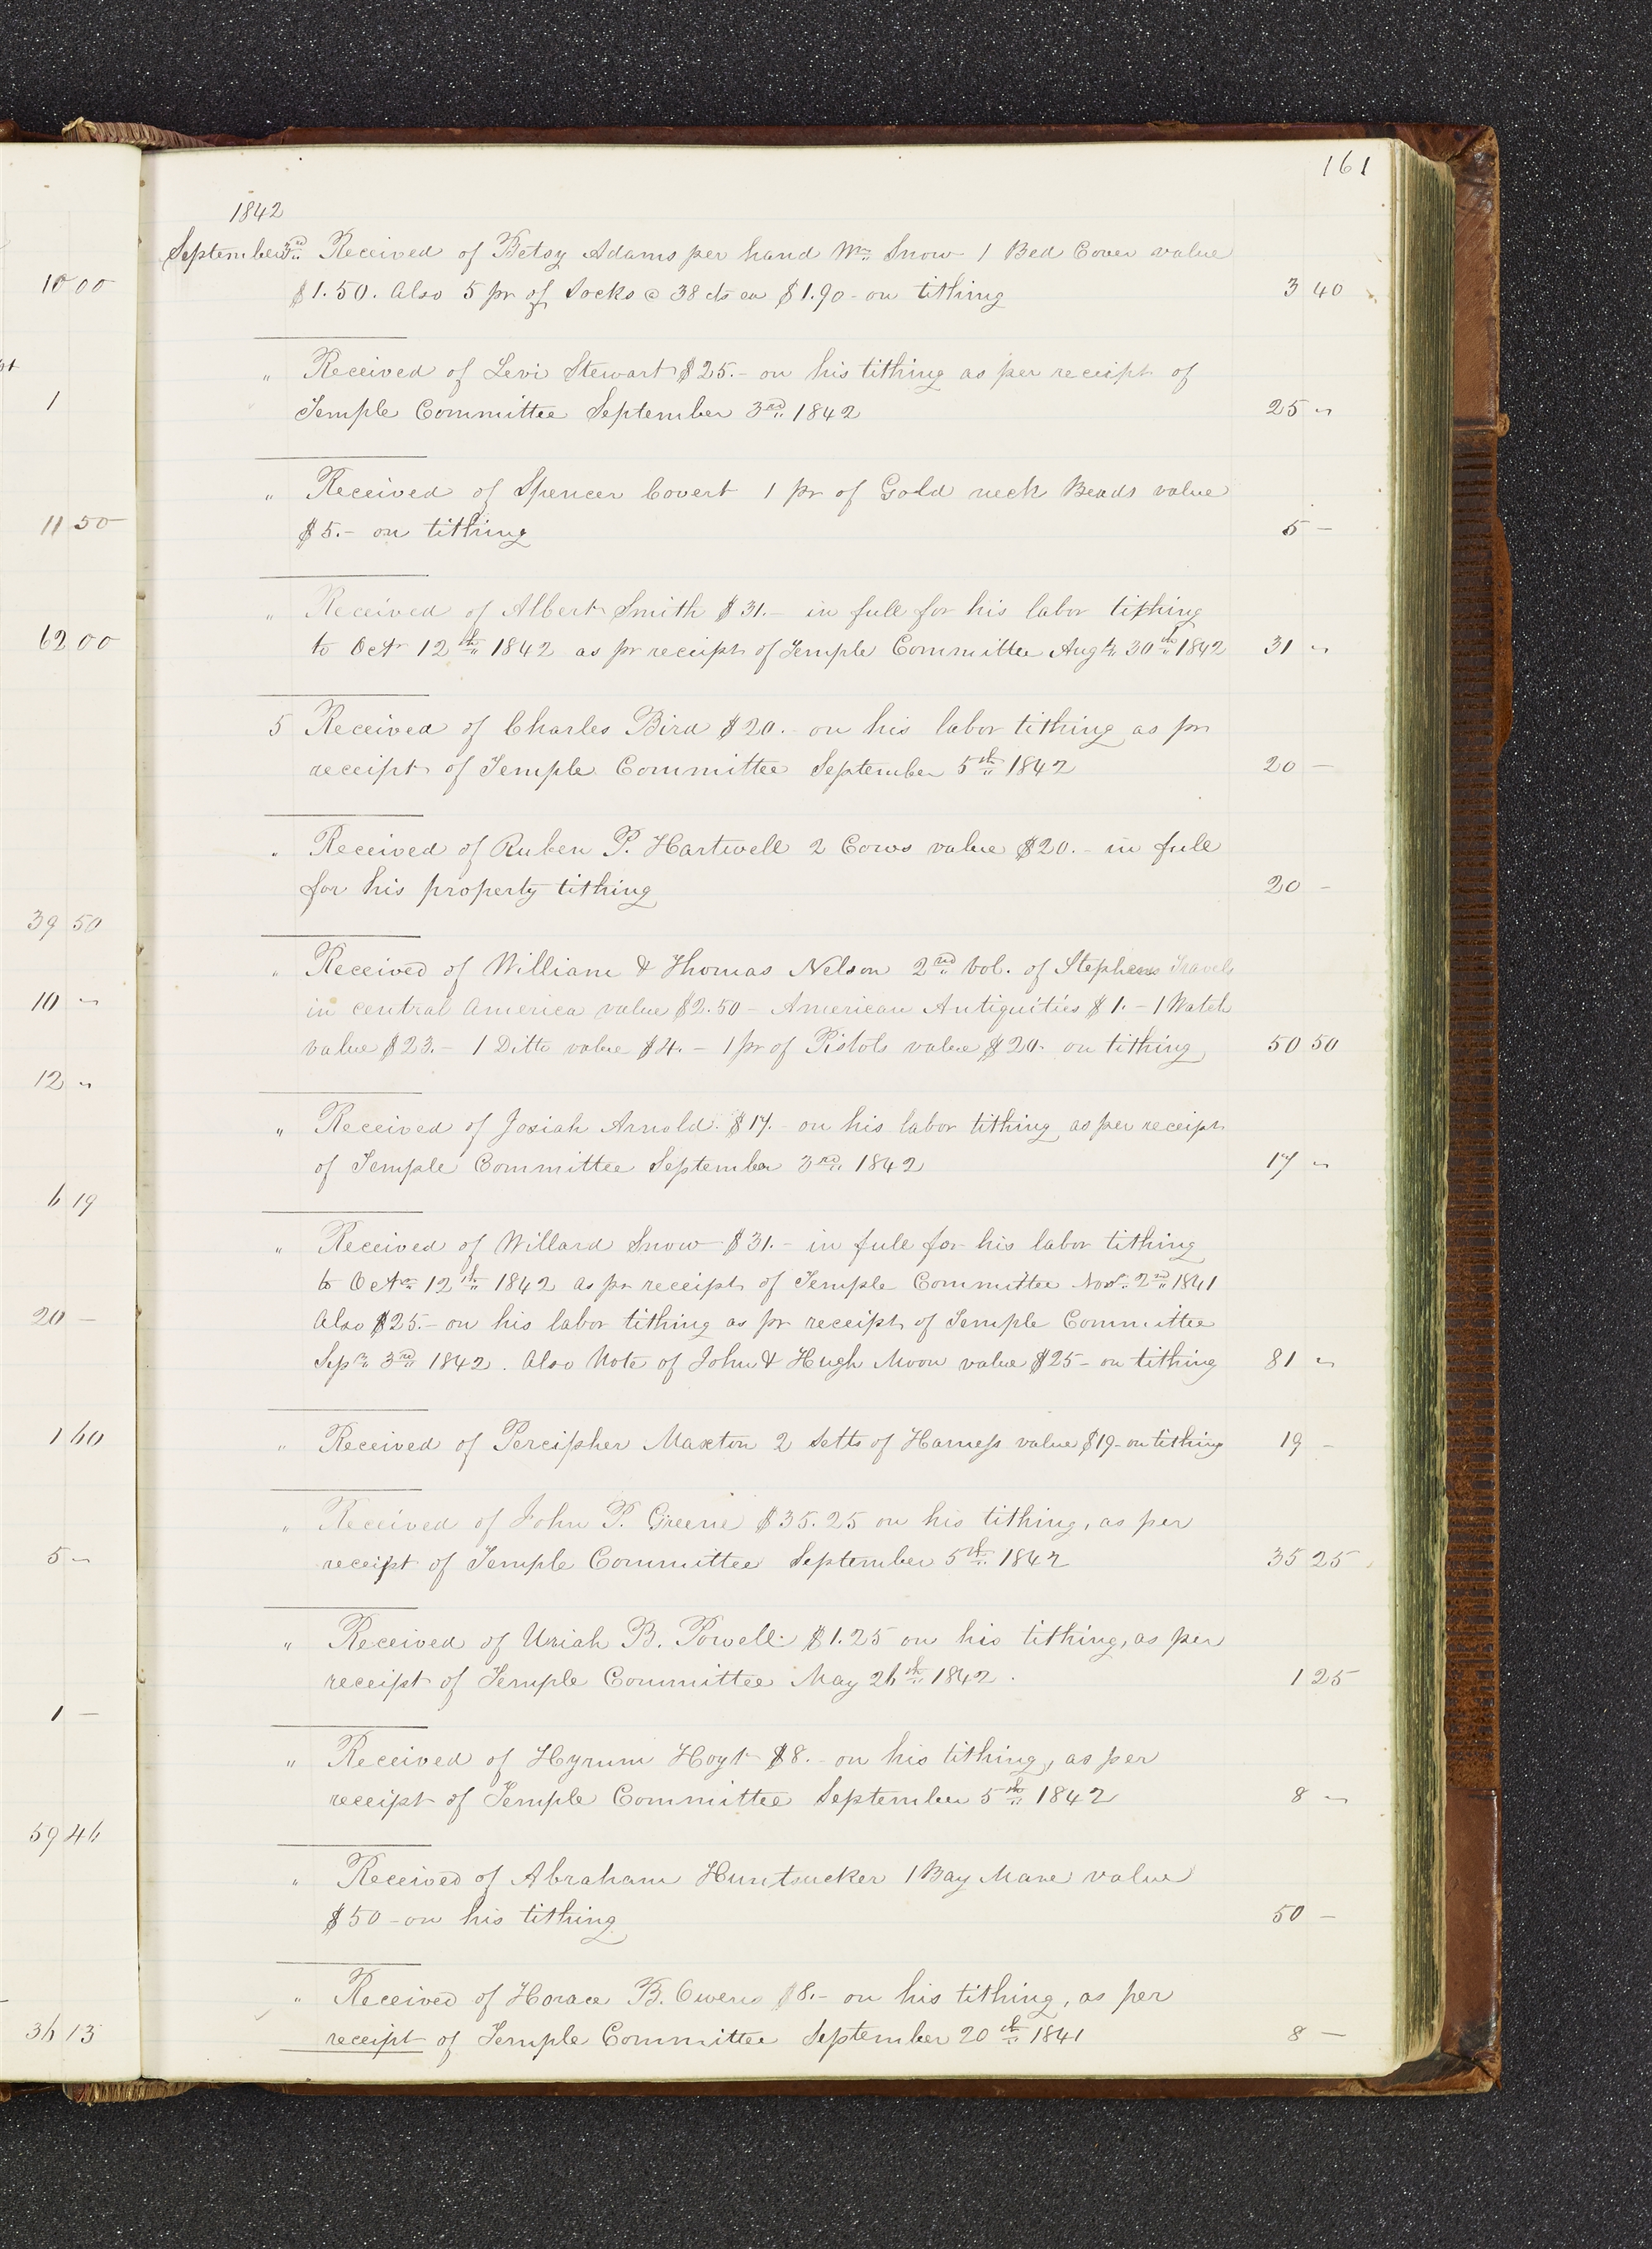 161
1842
September 3rd Received of Betsy Adams per hand Wm Snow 1 Bed Cover value
$1.50. Also 5 pr of Socks @ 38 cts ea $1.90 - on tithing 3 40
" Received of Levi Stewart $25.- on his tithing as per receipt of
Temple Committee September 3rd 1842 25 "
" Received of Spencer Covert 1 pr of Gold neck Beads value
$5.- on tithing 5 -
" Received of Albert Smith $31.- in full for his labor tithing
to Octr 12th 1842 as pr receipt of Temple Committee Augt 30th 1842 31 "
5 Received of Charles Bird $20.- on his labor tithing as pr
receipt of Temple Committee September 5th 1842 20 -
" Received of Ruben P. Hartwell 2 Cows value $20.- in full
for his property tithing 20 -
" Received of William & Thomas Nelson 2nd Vol. of Stephens Travels
in central America value $2.50 - American Antiquities $1.- 1 Watch
value $23.- 1 Ditto value $4.- 1 pr of Pistols value $20- on tithing 50 50
" Received of Josiah Arnold $17.- on his labor tithing as per receipt
of Temple Committee September 3rd 1842 17 "
" Received of Willard Snow $31.- in full for his labor tithing
to Octr 12th 1842 as pr receipt of Temple Committee Novr 2nd 1841
Also $25.- on his labor tithing as pr receipt of Temple Committee
Sepr 3rd 1842. Also Note of John & Hugh Moon value $25- on tithing 81 "
" Received of Percipher Maxton 2 Setts of Harness value $19- on tithing 19 -
" Received of John P. Greene $35.25 on his tithing, as per
receipt of Temple Committee September 5th 1842 35 25
" Received of Uriah B. Powell $1.25 on his tithing, as per
receipt of Temple Committee May 26th 1842. 1 25
" Received of Hyrum Hoyt $8.- on his tithing, as per
receipt of Temple Committee September 5th 1842 8 "
" Received of Abraham Huntsucker 1 Bay Mare value
$50- on his tithing 50 -
" Received of Horace B. Owens $8.- on his tithing, as per
receipt of Temple Committee September 20th 1841 8 -
10 00
1
11 50
62 00
39 50
10 "
12 "
6 19
20 -
1 60
5 "
1 -
59 46
36 13